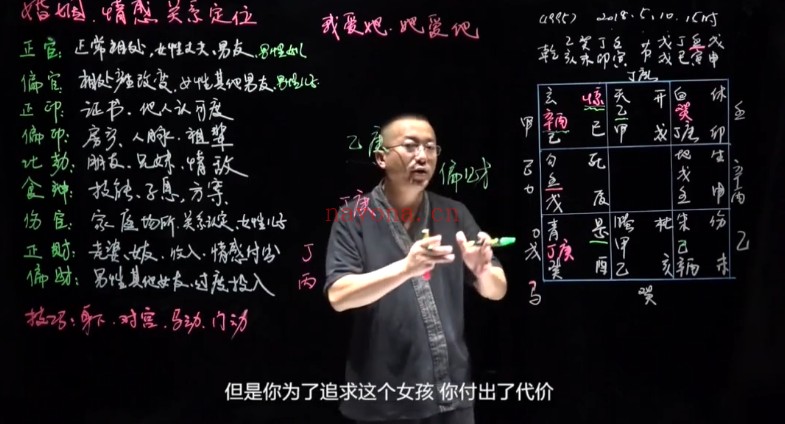 婚姻、情感关系定位
正官：正常相处，女性丈夫，男友，男性女儿
偏官：相处难改变，女性其他男友，男性儿子
正印：证书、他人认可度
偏印：房子、人脉、祖辈
比劫：朋友、兄妹、情敌
食神：技能、子息、方案
伤官：家庭场所、关系认定、女性儿子
正财：老婆、女友、收入、情感付出
偏财：男性其他女友、过度投入
技巧：身下、对宫、马动、门动
我爱她、她爱他
乙庚
丁庚
偏财
丁
丙
(1995) 2018.5.10.15时
乾 乙癸丁
亥未卯寅
戊丁 戊
戊巳寅申
丁庚
玄 惊 天 开 白 休
辛丙 乙 癸
己 己 甲 戊 丁庚 卯
甲
壬
勾 死 地 生
壬 戊
戊 辰 壬 申
辛丙
青 景 杜 朱 伤
丁庚 甲 己
癸 酉 乙 亥 辛丙 未
乙
戊
马
癸
但是你为了追求这个女孩 你付出了代价